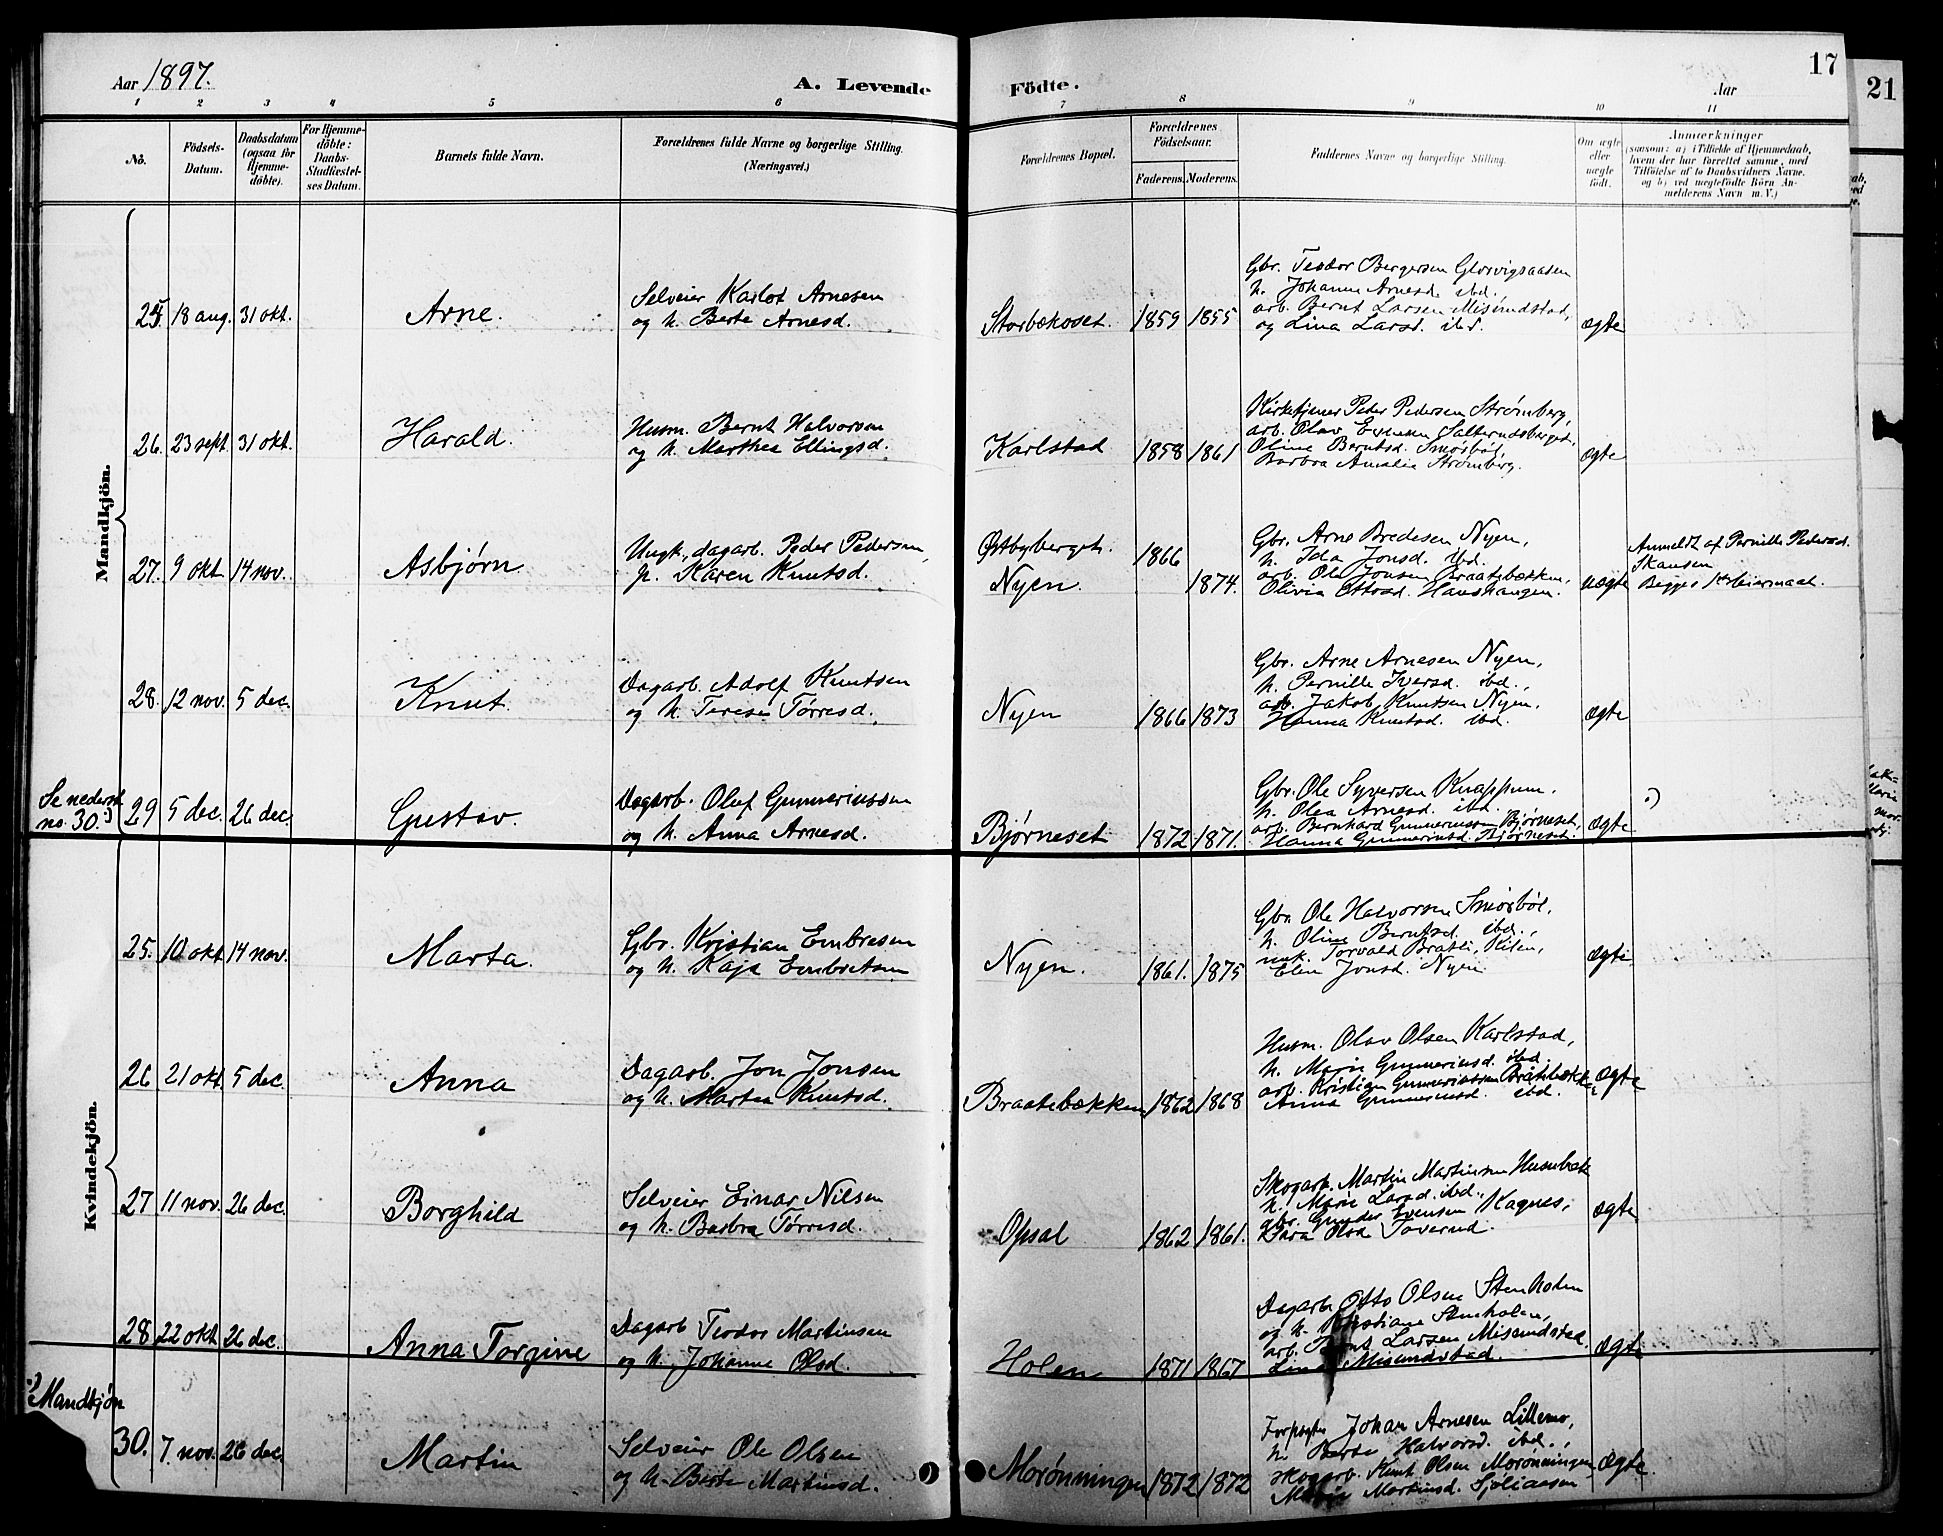 Aar 1897.
A. Levende
Födte.
Aar
17
21
1 2 3 4 5 6 7 8 9 10 11
No.
Födsels-
Datum.
Daabsdatum
(ogsaa for
Hjemme-
döbte).
For Hjemme-
döbte:
Daabs-
Stadfæstel-
ses Datum.
Barnets fulde Navn.
Forældrenes fulde Navne og borgerlige Stilling.
(Næringsvei.)
Forældrenes Bopæl.
Forældrenes
Födselsaar.
Faderens. Moderens.
Faddernes Navne og borgerlige Stilling.
Om ægte
eller
uægte
født.
Anmærkninger
(saasom: a) i Tilfælde af Hjemmedaab,
hvem der har forrettet samme, med
Tilföielse af to Daabsvidners Navne,
og b) ved uægtefödte Börn An-
melderens Navn m. V.)
Mandkjön.
25. 18 aug. 31 okt.
Arne.
Selveier Karlot Arnesen
og h. Berte Arnesd.
Storbækoset. 1859 1855
Gbr. Teodor Bergersen Glorvigsaasen
h. Johanne Arnesd. ibd.
arb. Bernt Larsen Misundstad,
og Lina Larsd. ibd.
ægte
26. 23 sept. 31 okt.
Harald.
Husm. Bernt Halvorsen
og h. Marthea Ellingsd.
Karlstad 1858 1861
Kirketjener Peder Pedersen Strømberg,
arb. Olav Evensen
Oline Berntsd. Smøsbøl,
Barbra Amalia Strømberg.
ægte
27. 9 okt 14 nov.
Asbjørn.
Ungk., dagarb. Peder Pedersen,
p. Karen Knutsd.
Østbyberget. 1866
Nyen. 1874.
Gbr. Arne Bredesen Nyen,
h. Ida Jonsd. ibd.
arb. Ole Jonsen Braatebækken,
Olivia Ottosd. Haushaugen.
uægte
Anmeldt af Pernille Pedersd.
Skansen
Begges 1ste leiermaal.
28. 12 nov. 5 dec.
Knut.
Dagarb. Adolf Knutsen
og h. Terese Tørresd.
Nyen 1866 1873
Gbr. Arne Arnesen Nyen,
h. Pernille Iversd. ibd.,
arb. Jakob Knutsen Nyen,
Hanna Knutsd. ibd.
ægte
Se nederst
no. 30.
29 5 dec. 26 dec.
Gustav.
Dagarb. Oluf Gunneriussen
og h. Anna Arnesd.
Bjørneset 1872 1871.
Gbr. Ole Syversen Knappum.
h. Olea Arnesd. ibd.
arb. Bernhard Gunneriussen Bjørneset,
Hanna Gunneriusd. Bjørneset.
ægte
Kvindekjön.
25. 10 okt 14 nov.
Marta.
Gbr. Kristian Embresen
og h. Kaja Embretsen
Nyen. 1861. 1875
Gbr. Ole Halvorsen Smøsbøl,
h. Oline Berntsd. ibd.,
unk. Torvald Bratli, Kilen,
Elen Jonsd. Nyen
ægte.
26 21 okt 5 dec.
Anna
Dagarb. Jon Jonsen
og h. Martea Knutsd.
Braatebækken 1862 1868
Husm. Olav Olsen Karlstad,
h. Marie Gunneriusd. ibd.
arb. Kristian Gunneriussen Bratebække
Anna Gunneriusd. ibd.
ægte
27 11 nov. 26 dec.
Borghild
Selveier Einar Nilsen
og h. Barbra Tørresd.
Opsal 1862 1861.
Skogarb. Martin Martinsen Husubæk
h. Marie Larsd. ibd.,
gbr. Gunder Evensen Kagnes,
Olsd Toverud.
ægte
28 22 okt 26 dec.
Anna Torgine
Dagarb Teodor Martinsen
og h. Johanne Olsd.
Holen 1871 1867
Dagarb. Otto Olsen Stenholen
og h. Kristiane Stenholen,
arb. Bernt Larsen Misundstad.
Lina Misundstad.
ægte
Mandkjøn
30. 7 nov. 26 dec
Martin
Selveier Ole Olsen
og h. Berte Martinsd.
Morønningen 1872 1872
Forpagter Johan Arnesen Lillemo,
h. Berte Halvorsd. ibd.,
skogarb Knut Olsen Morønningen,
Marie Martinsd. Sjøliaasen
ægte